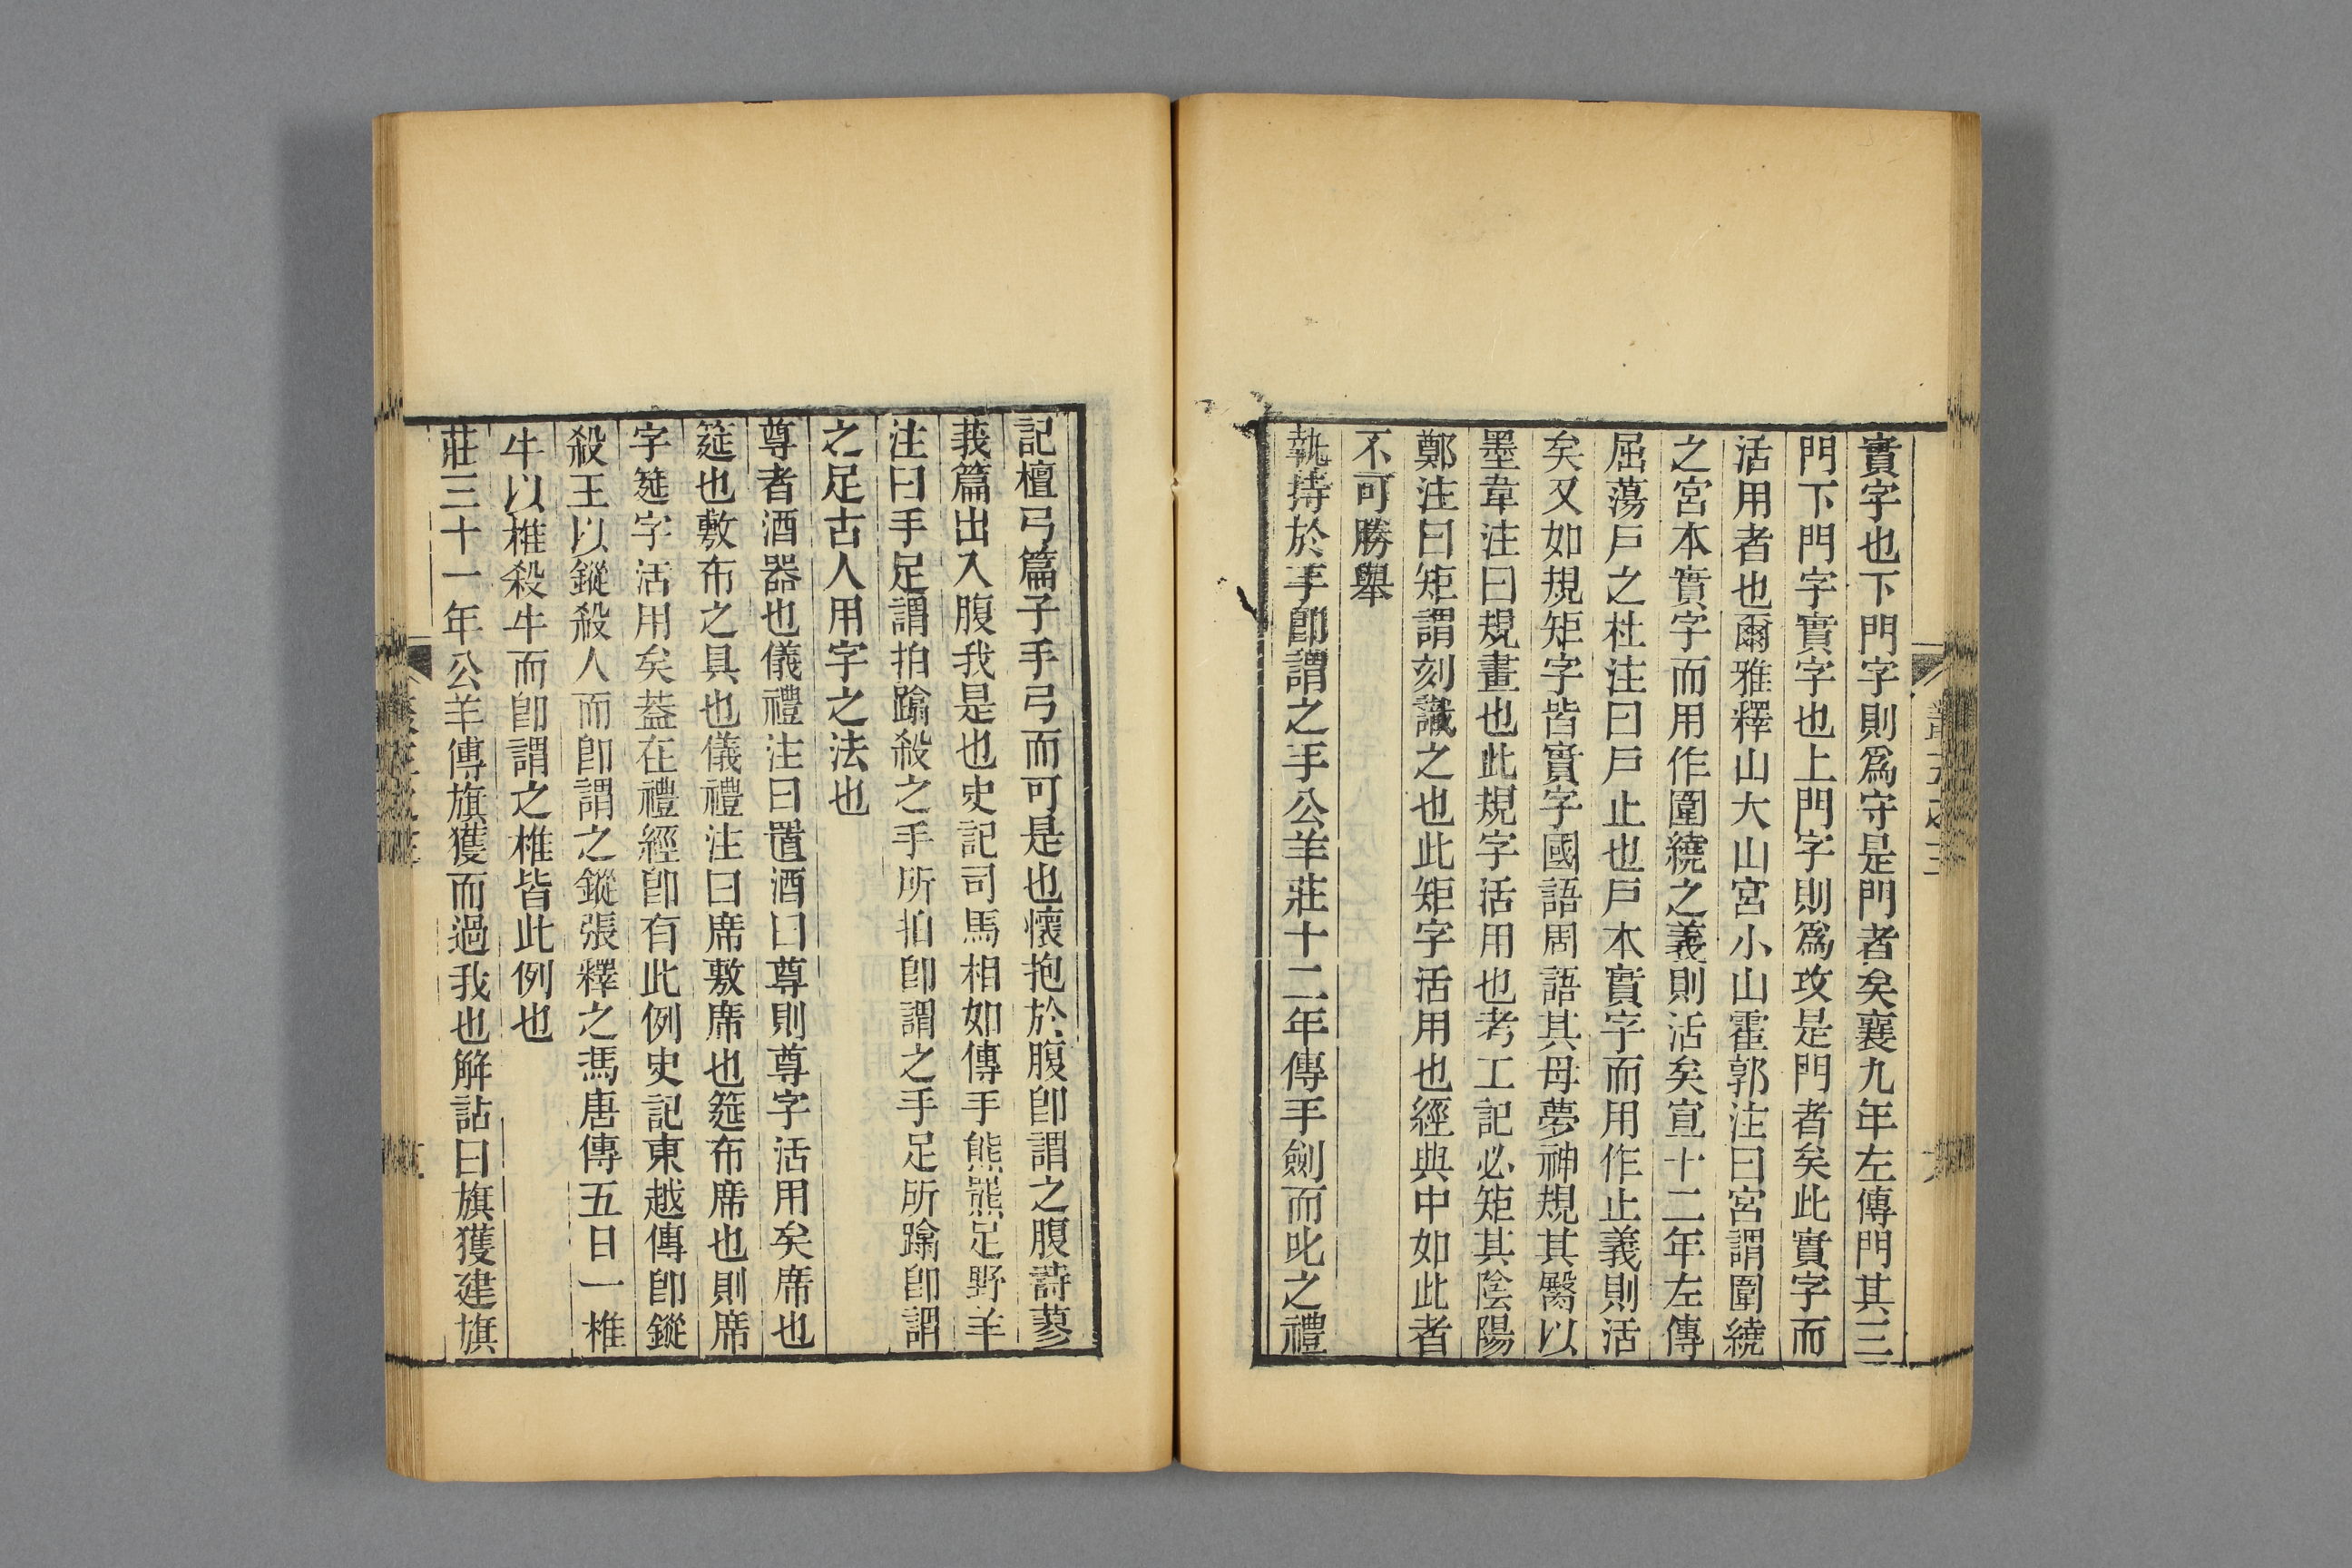 實字也下門字則爲守是門者矣襄九年左傳門其三
門下門字實字也上門字則爲攻是門者矣此實字而
活用者也爾雅釋山大山宮小山霍郭注曰宮謂圍繞
之宮本實字而用作圍繞之義則活矣宣十二年左傳
屈蕩戶之杜注曰戶止也戶本實字而用作止義則活
矣又如規矩字皆實字國語周語其母夢神規其臀以
墨韋注曰規畫也此規字活用也考工記必矩其陰陽
鄭注曰矩謂刻識之也此矩字活用也經典中如此者
不可勝舉
執持於手卽謂之手公羊莊十二年傳手劍而叱之禮
記檀弓篇子手弓而可是也懷抱於腹卽謂之腹詩蓼
莪篇出入腹我是也史記司馬相如傳手熊羆足野羊
注曰手足謂拍蹹殺之手所拍卽謂之手足所蹹卽謂
之足古人用字之法也
尊者酒器也儀禮注曰置酒曰尊則尊字活用矣席也
筵也敷布之具也儀禮注曰席敷席也筵布席也則席
字筵字活用矣葢在禮經卽有此例史記東越傳卽鏦
殺王以鏦殺人而卽謂之鏦張釋之馮唐傳五日一椎
牛以椎殺牛而卽謂之椎皆此例也
莊三十一年公羊傳旗獲而過我也解詁曰旗獲建旗